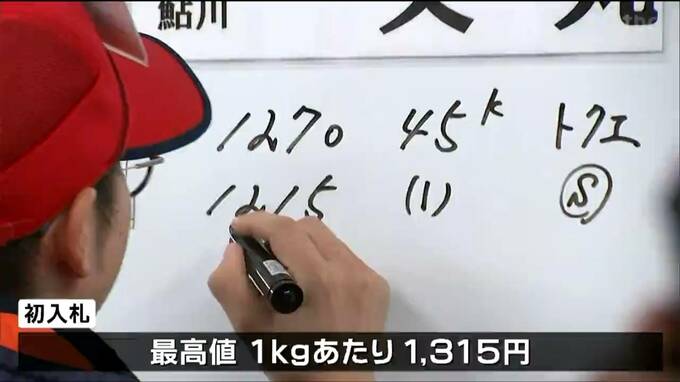 鮎川
1270 45k トクエ
1215 (1) Ⓢ
初入札
最高値 1kgあたり 1,315円